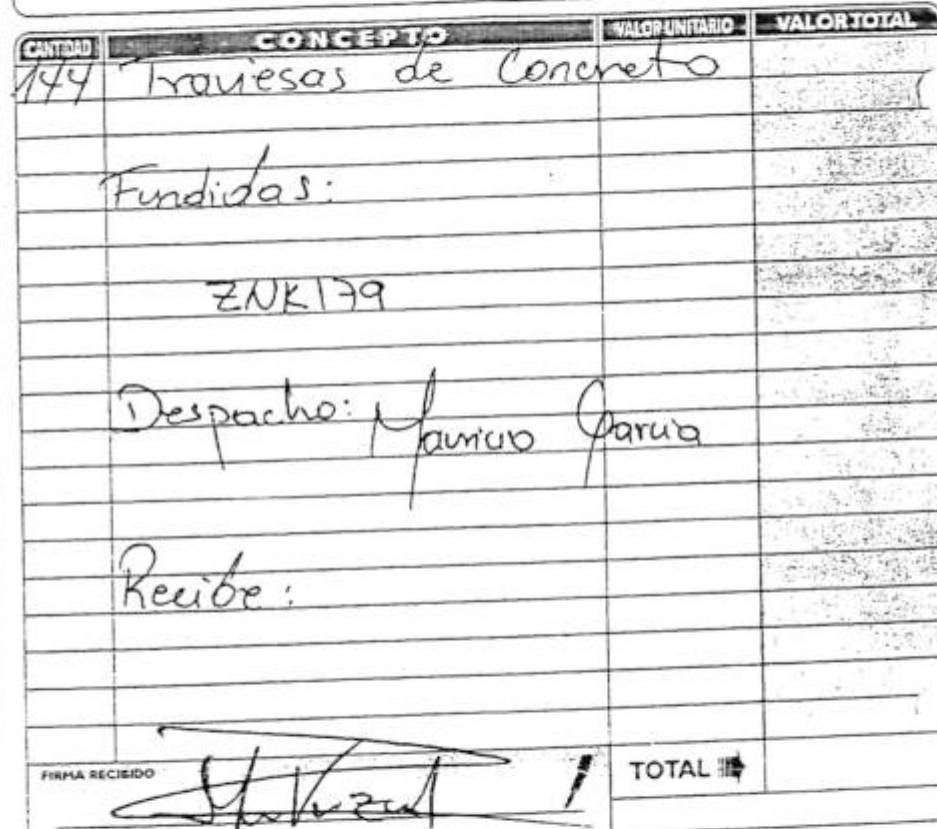 CANTIDAD CONCEPTO VALOR UNITARIO VALOR TOTAL
144 Traviesas de Concreto
Fundidas:
ZNK179
Despacho: Mauricio Garcia
Recibe:
FIRMA RECIBIDO
TOTAL